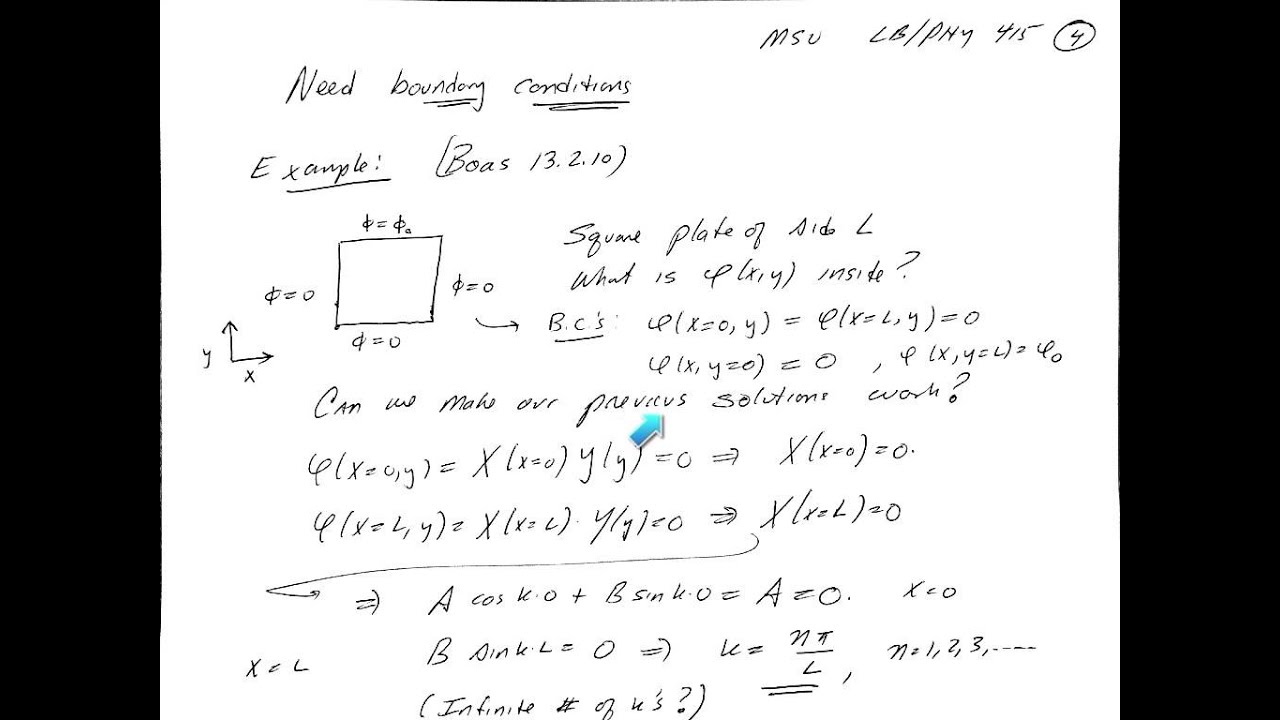 MSU LB/PHY 415 4
Need boundary conditions
Example: (Boas 13.2.10)
ϕ=ϕ₀
ϕ=0
ϕ=0
ϕ=0
y
x
Square plate of side L
What is φ(x,y) inside?
B.C.'s: φ(x=0, y) = φ(x=L, y)=0
φ(x, y=0) = 0 , φ(x, y=L)=φ₀
Can we make our previous solutions work?
φ(x=0,y) = X(x=0) Y(y)=0 ⇒ X(x=0)=0.
φ(x=L, y)= X(x=L)· Y(y)=0 ⇒ X(x=L)=0
⇒ A cos k·0 + B sin k·0 = A=0. x=0
x=L B sin k·L= 0 ⇒ k= nπ/L , n=1,2,3,.....
(Infinite # of k's?)